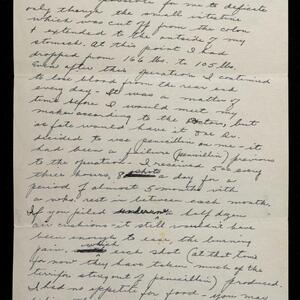 possible for me to deficate
only through the small intestine
which was cut off from the colon
& extended to the outside of my
stomach. At this point I had
dropped from 166 lbs. to 105 lbs
Even after this operation I continued
to lose blood from the rear end
every day - It was a matter of
time before I would meet my
maker according to the Doctors, but
as fate would have it one Dr.
decided to use penicillin on me - it
had been a failure (penicillin) previous
to the operation - I received 5cc every
three hours, 8 shots a day for a
period of almost 5 months with
a wks. rest in between each month.
If you piled a half dozen
air cushions - it still wouldn't have
been enough to ease the burning
pain, which each shot (at that time
for now they have taken much of the
terrific sting out of penicillin) produced.
I had no appetite for food, you may